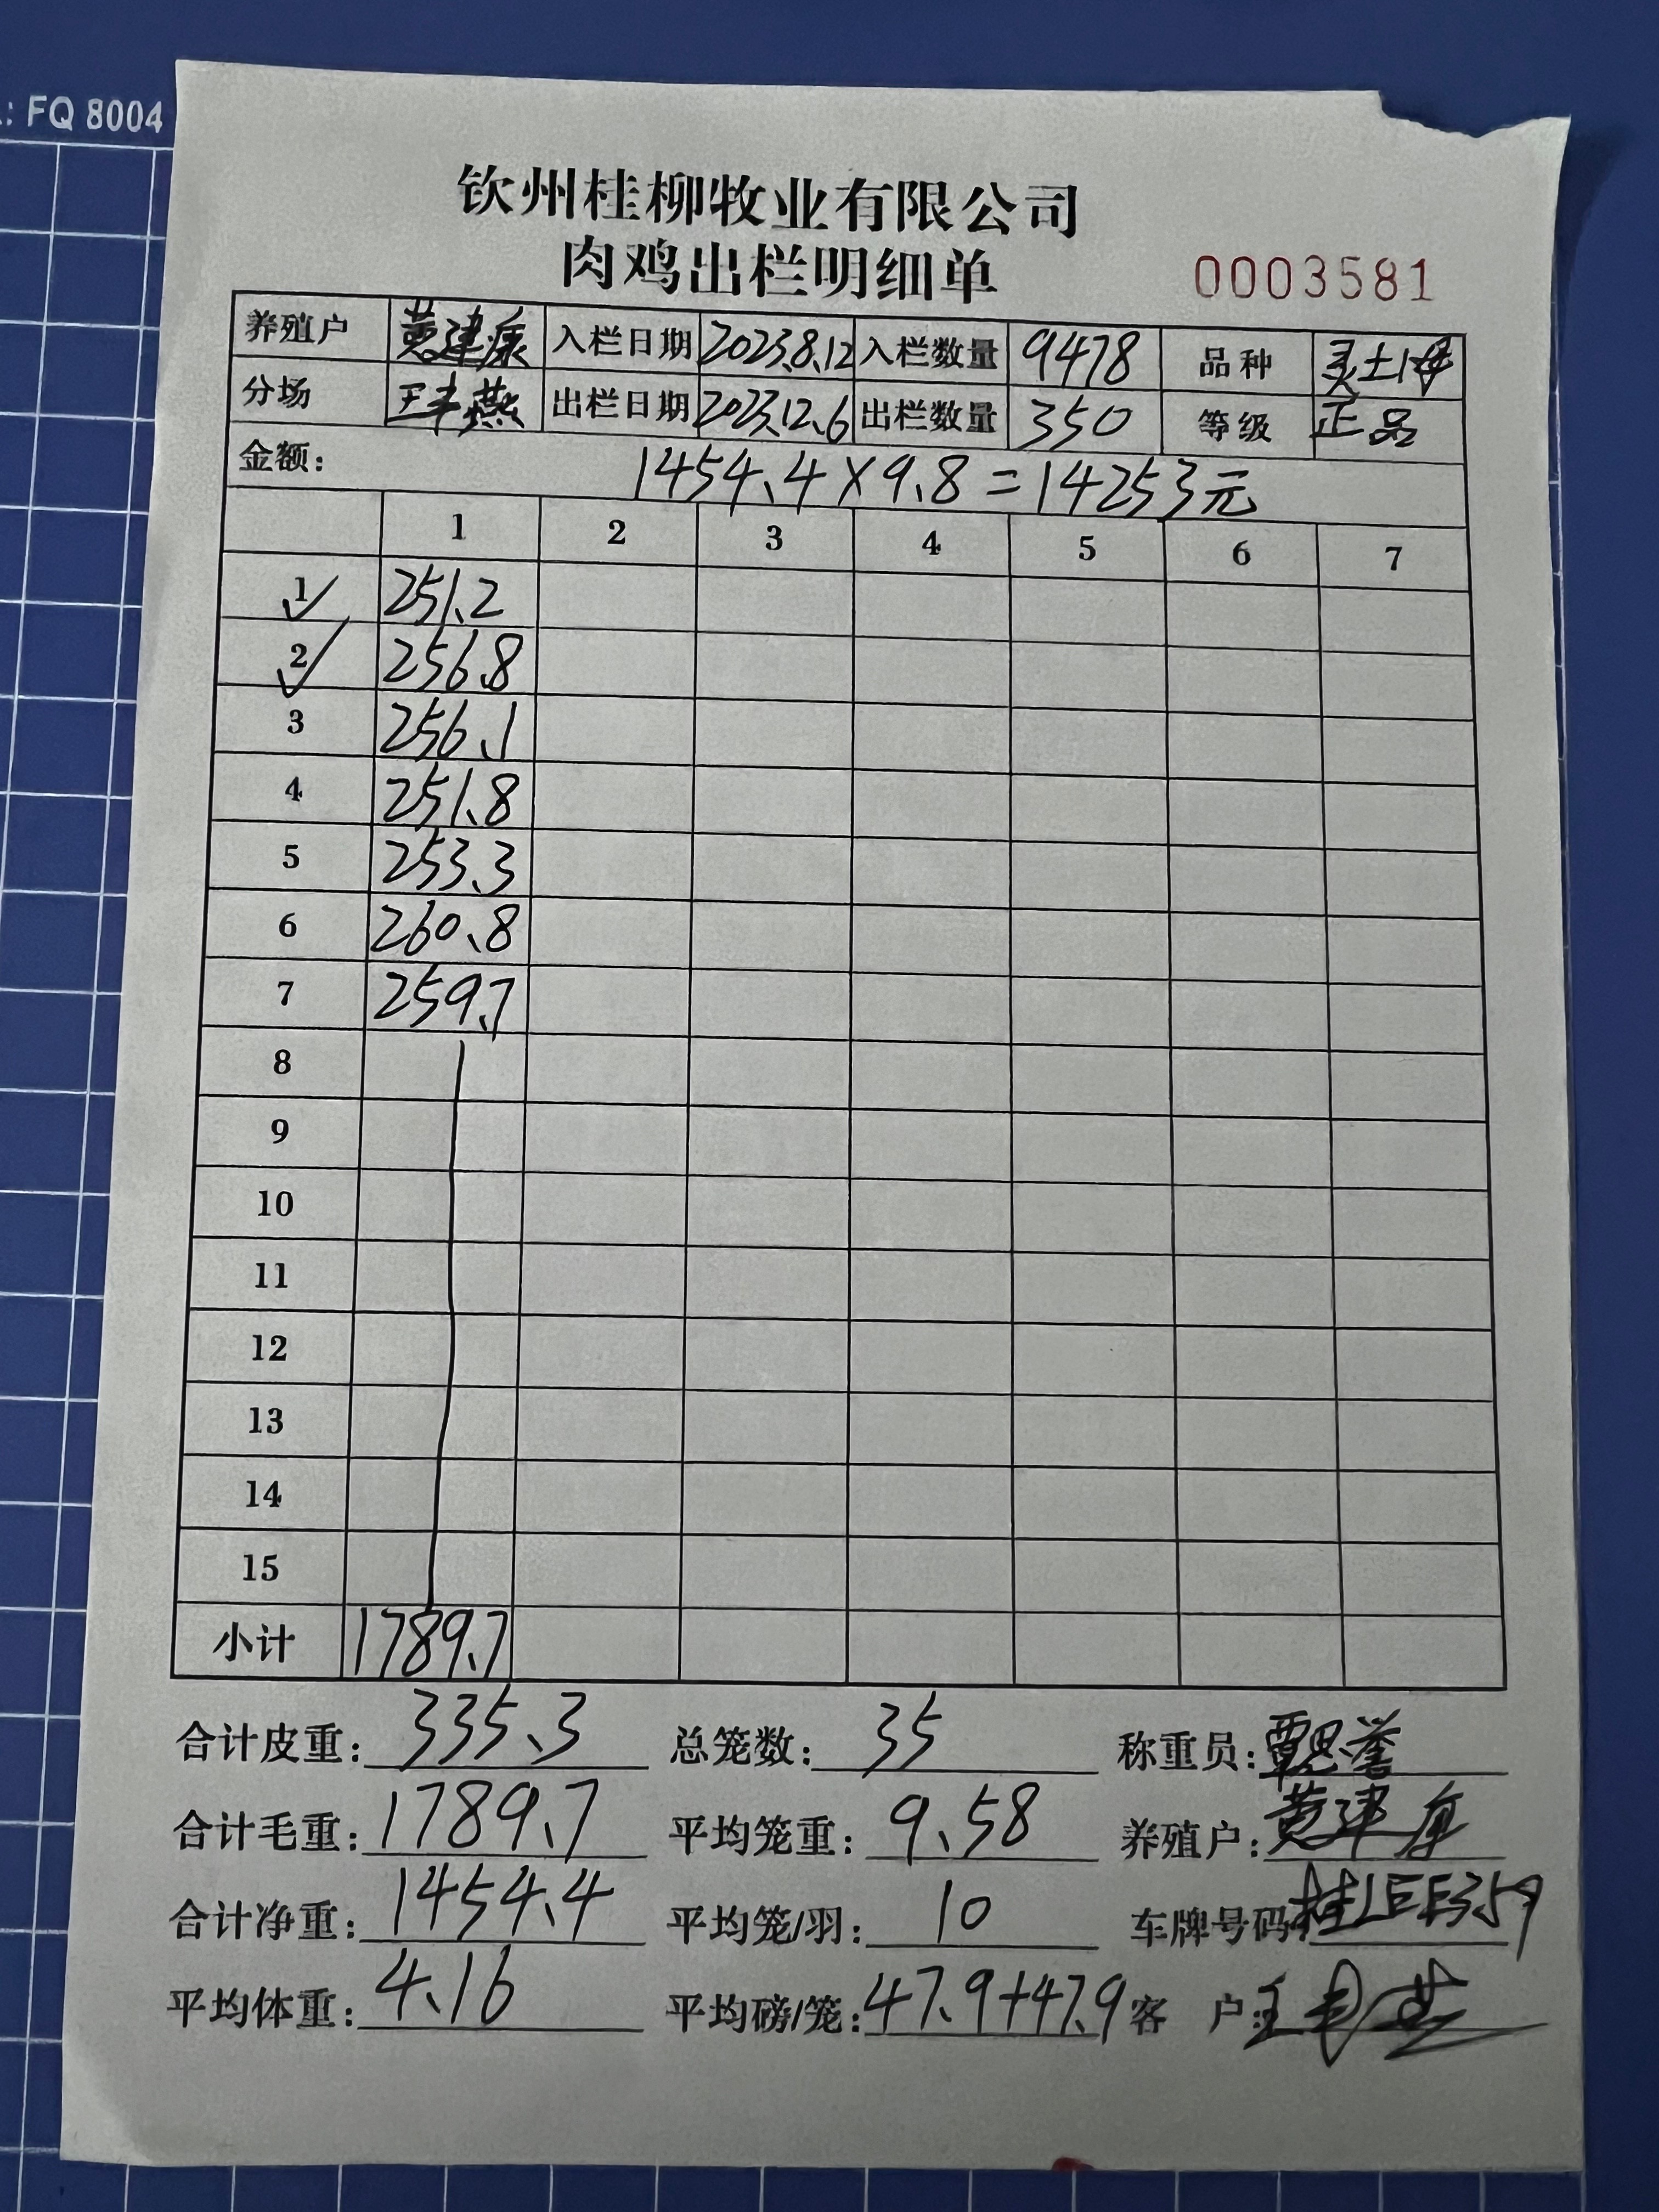 : FQ 8004
钦州桂柳牧业有限公司
肉鸡出栏明细单
0003581
养殖户 黄建康 入栏日期 2023.8.12 入栏数量 9478 品种 灵土1母
分场 王丰燕 出栏日期 2023.12.6 出栏数量 350 等级 正品
金额: 1454.4×9.8=14253元
1 2 3 4 5 6 7
1 251.2
2 256.8
3 256.1
4 251.8
5 253.3
6 260.8
7 259.7
8
9
10
11
12
13
14
15
小计 1789.7
合计皮重: 335.3 总笼数: 35 称重员: 覃思誉
合计毛重: 1789.7 平均笼重: 9.58 养殖户: 黄建康
合计净重: 1454.4 平均笼/羽: 10 车牌号码: 桂LEE359
平均体重: 4.16 平均磅/笼: 47.9+47.9 客户: